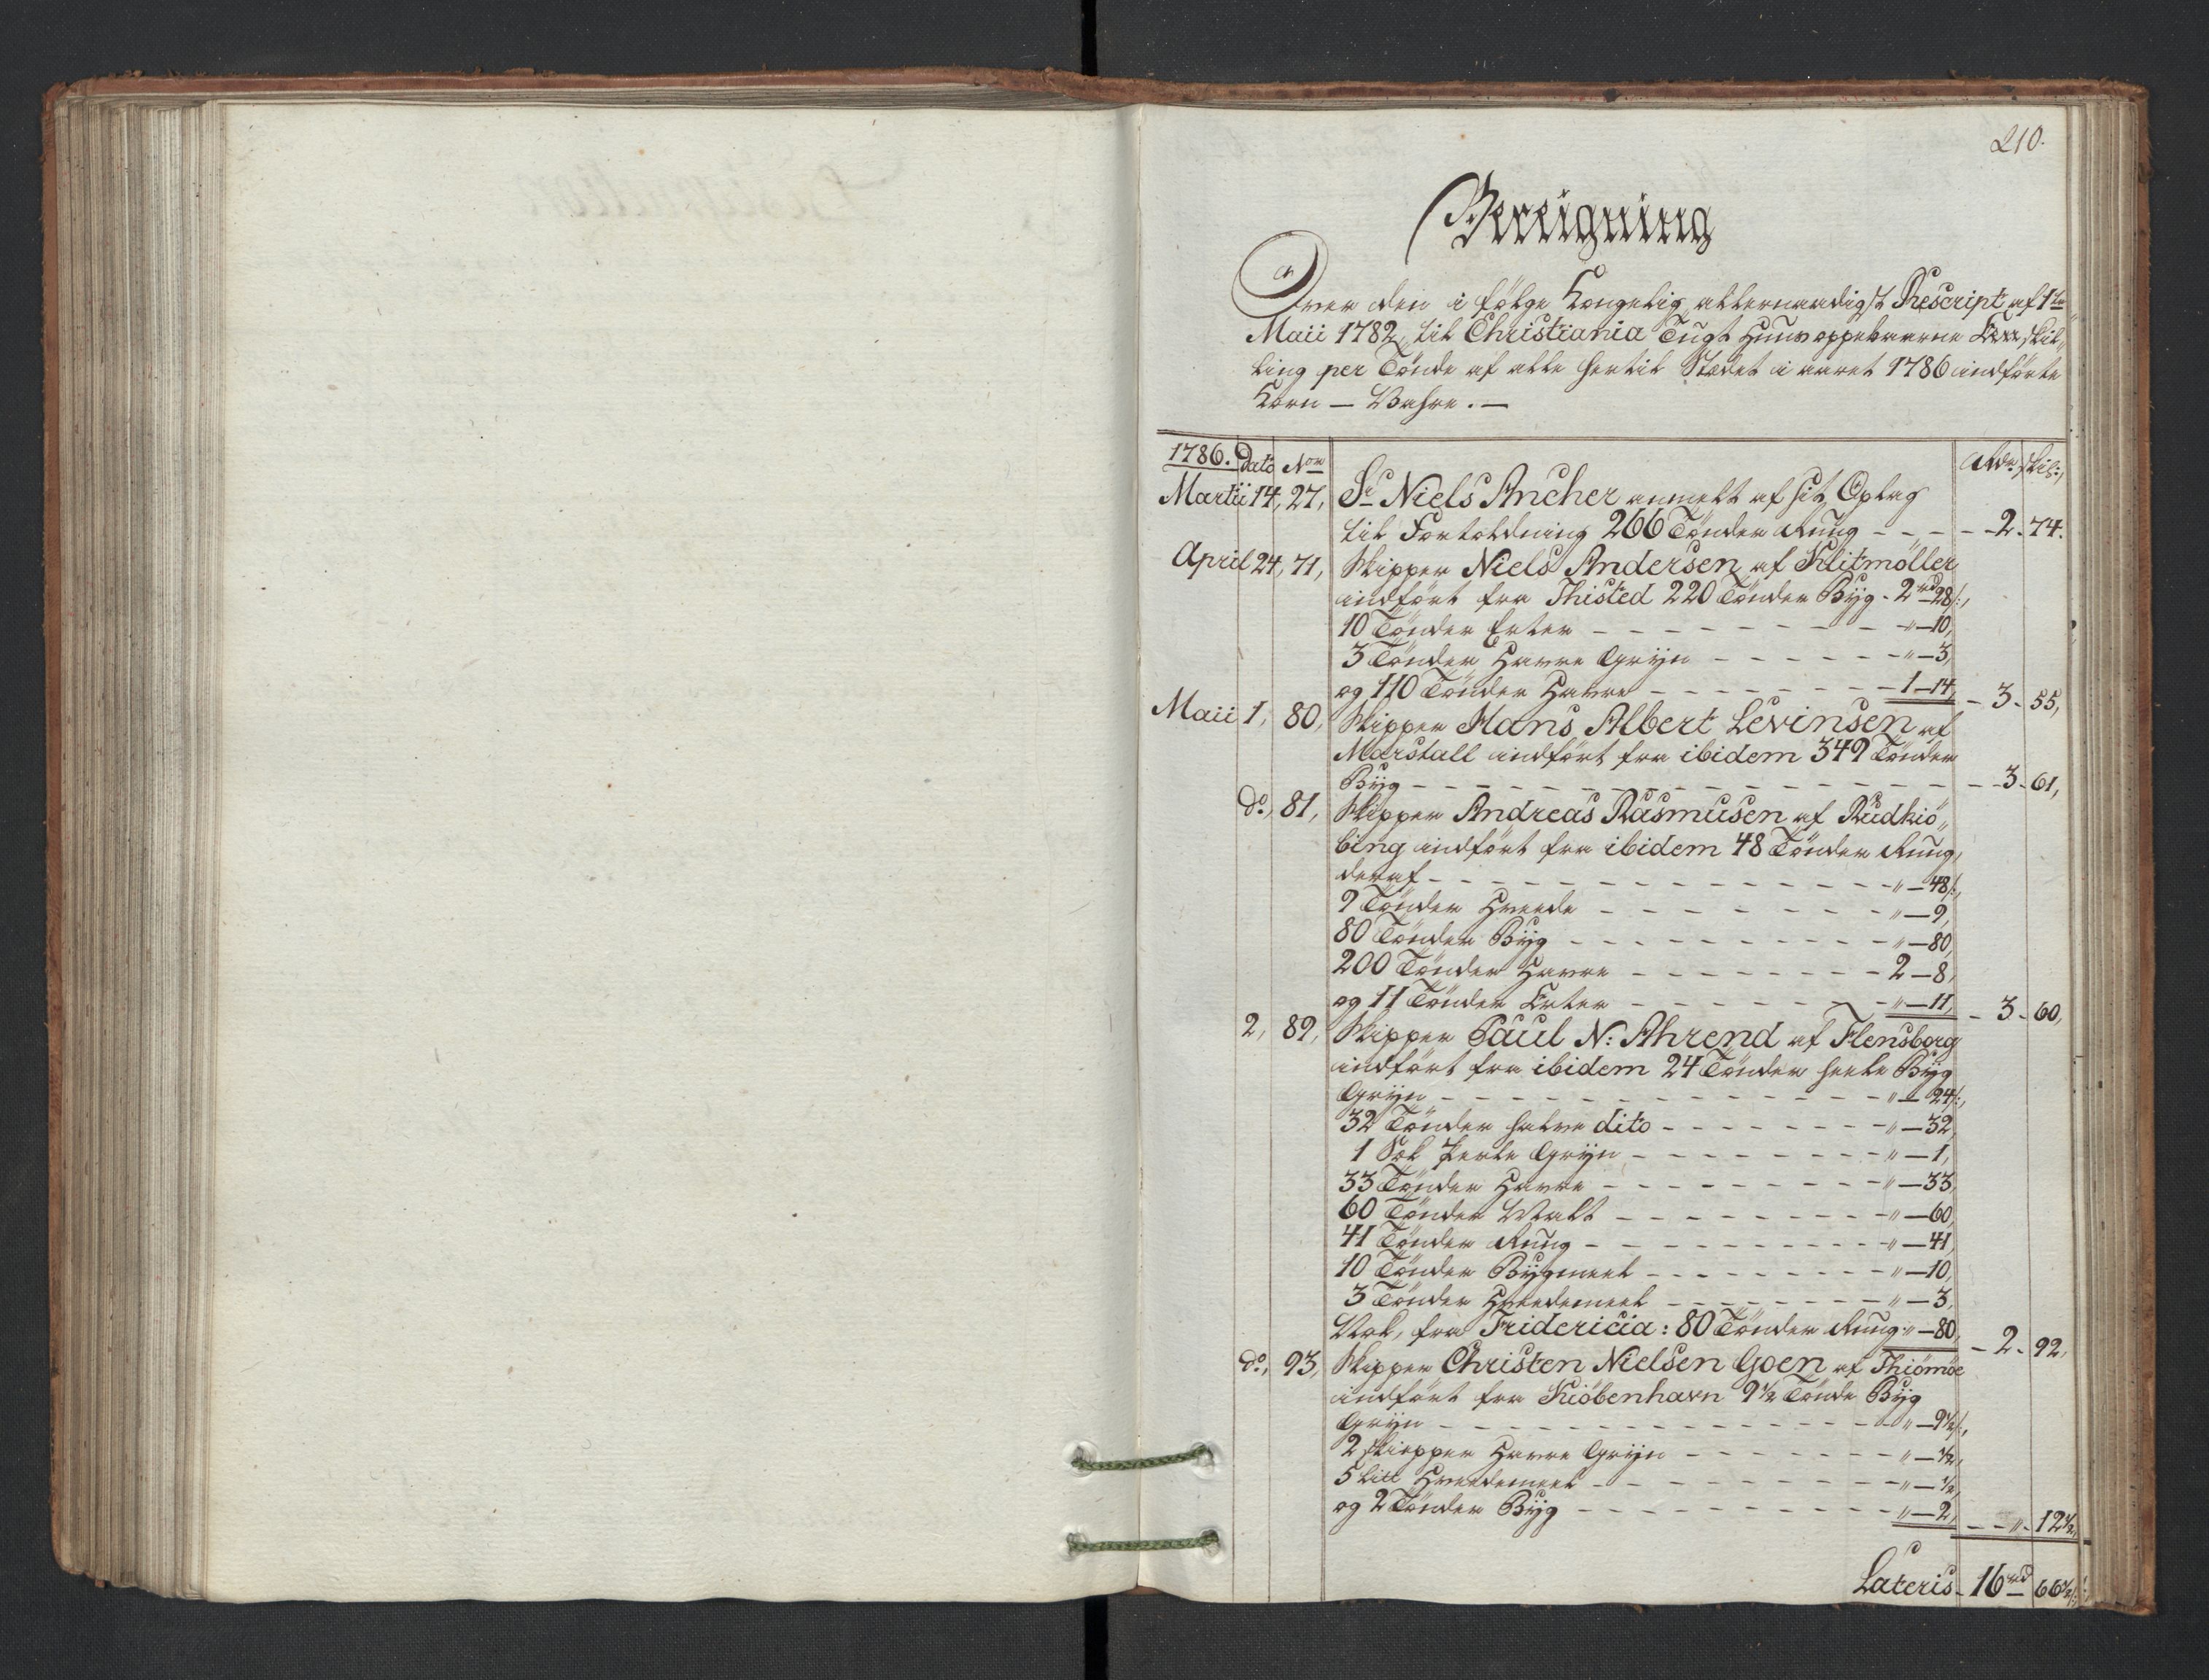 210.
Bereigning
Over den i følge Kongelig allernaadigst Rescript af 1te
Maii 1782, til Christiania Tugt Huus oppebaarne Een skil„
ling per Tønde af alle hertil Stædet i aaret 1786 indførte
Korn – Vahre. –
1786. Dato No Rdr. skil:,
Martii 14, 27, Sr Niels Ancher anmelt af sit Oplag
til Fortoldning 266 Tønder Rúug - - - - 2. 74.
April 24, 71, Skipper Niels Andersen af Klitmøller
indført fra Thisted 220 Tønder Byg - 2rd 28/:,
10 Tønder Erter - - - - - - - - - " — 10,
3 Tønder Havre Gryn - - - - - - " — 3,
og 110 Tønder Havre - - - - - - - 1 — 14, - 3 - 55,
Maii 1, 80, Skipper Hans Albert Levinsen af
Marstall indført fra ibidem 349 Tønder
Byg - - - - - - - - - - - - - - - - 3 - 61,
do, 81, Skipper Andreas Rasmusen af Rudkiø„
bing indført fra ibidem 48 Tønder Rúug,
deraf - - - - - - - - - - - - - - " — 48/:,
9 Tønder Hveede - - - - - - - - " — 9,
80 Tønder Byg - - - - - - - - - " — 80,
200 Tønder Havre - - - - - - - - 2 — 8,
og 11 Tønder Erter - - - - - - - " — 11, - 3 - 60,
2, 89, Skipper Paul N: Ahrend af Flensborg
indført fra ibidem 24 Tønder heele Byg
Gryn - - - - - - - - - - - - - " — 24/:,
32 Tønder halve dito - - - - - - - " — 32,
1 Sæk Perle Gryn - - - - - - - - " — 1,
33 Tønder Havre - - - - - - - - - " — 33,
60 Tønder Malt - - - - - - - - " — 60,
41 Tønder Rúug - - - - - - - - - " — 41,
10 Tønder Bygmeel - - - - - - - - " — 10,
3 Tønder Hveedemeel - - - - - - - " — 3,
Item, fra Fridericia: 80 Tønder Rúug " — 80, - 2 - 92,
do, 93, Skipper Christen Nielsen Goen af Thiømøe
indført fra Kiøbenhavn 9 1/2 Tønde Byg
Gryn - - - - - - - - - - - - - - " — 9 1/2/:,
2 skiepper Havre Gryn - - - - - - - " — 1/2,
5 Lill Hveedemeel - - - - - - - - " — 1/2,
og 2 Tønder Byg - - - - - - - - - " — 2, - - " - 12 1/2,
Lateris - 16rd 66 1/2/: